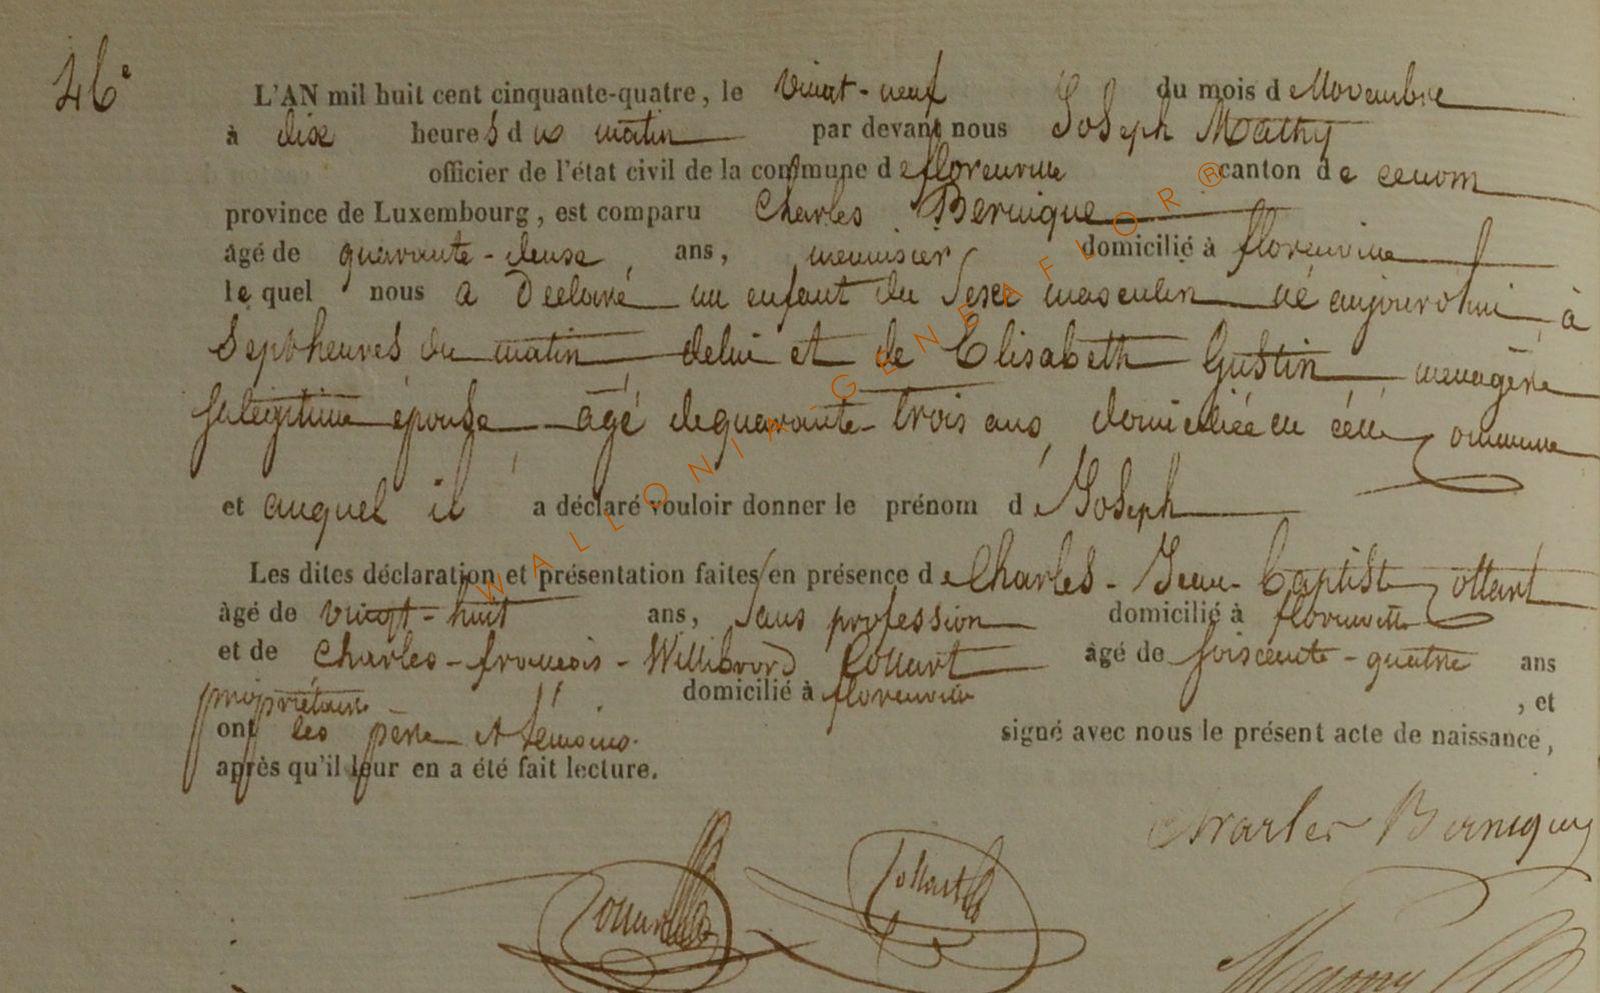 46e
L'AN mil huit cent cinquante-quatre, le vingt-neuf du mois de Novembre
à dix heures du matin par devant nous Joseph Mathy
officier de l'état civil de la commune de florenville canton de
province de Luxembourg, est comparu Charles Bernique
âgé de quarante-deux, ans, menuisier domicilié à florenville
le quel nous a Déclaré un enfant du sexe masculin né aujourd'hui à
Sept heures du matin de lui et de Elisabeth Gustin menagère
sa légitime épouse âgé de quarante-trois ans, domiciliée en cette Commune
et auquel il a déclaré vouloir donner le prénom de Joseph
Les dites déclaration et présentation faites en présence de Charles-Jean-Baptiste Collart
âgé de vingt-huit ans, sans profession domicilié à florenville
et de Charles-françois-Willibrord Collart âgé de soixante-quatre ans
propriétaire domicilié à florenville, et
ont les père et témoins. signé avec nous le présent acte de naissance,
après qu'il leur en a été fait lecture.
Charles Bernique
Collart
WALLONIA-GENEAFLOR®